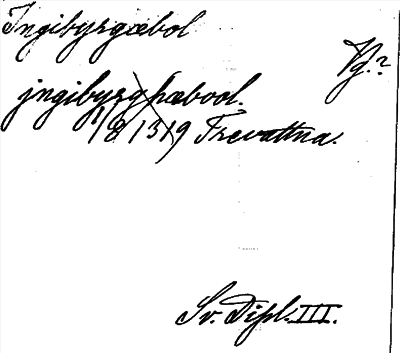 Ingibyrgæbol
Vg.?
jngibyrghæbool.
1/8 1319 Trevattna.
Sv. Dipl. III.